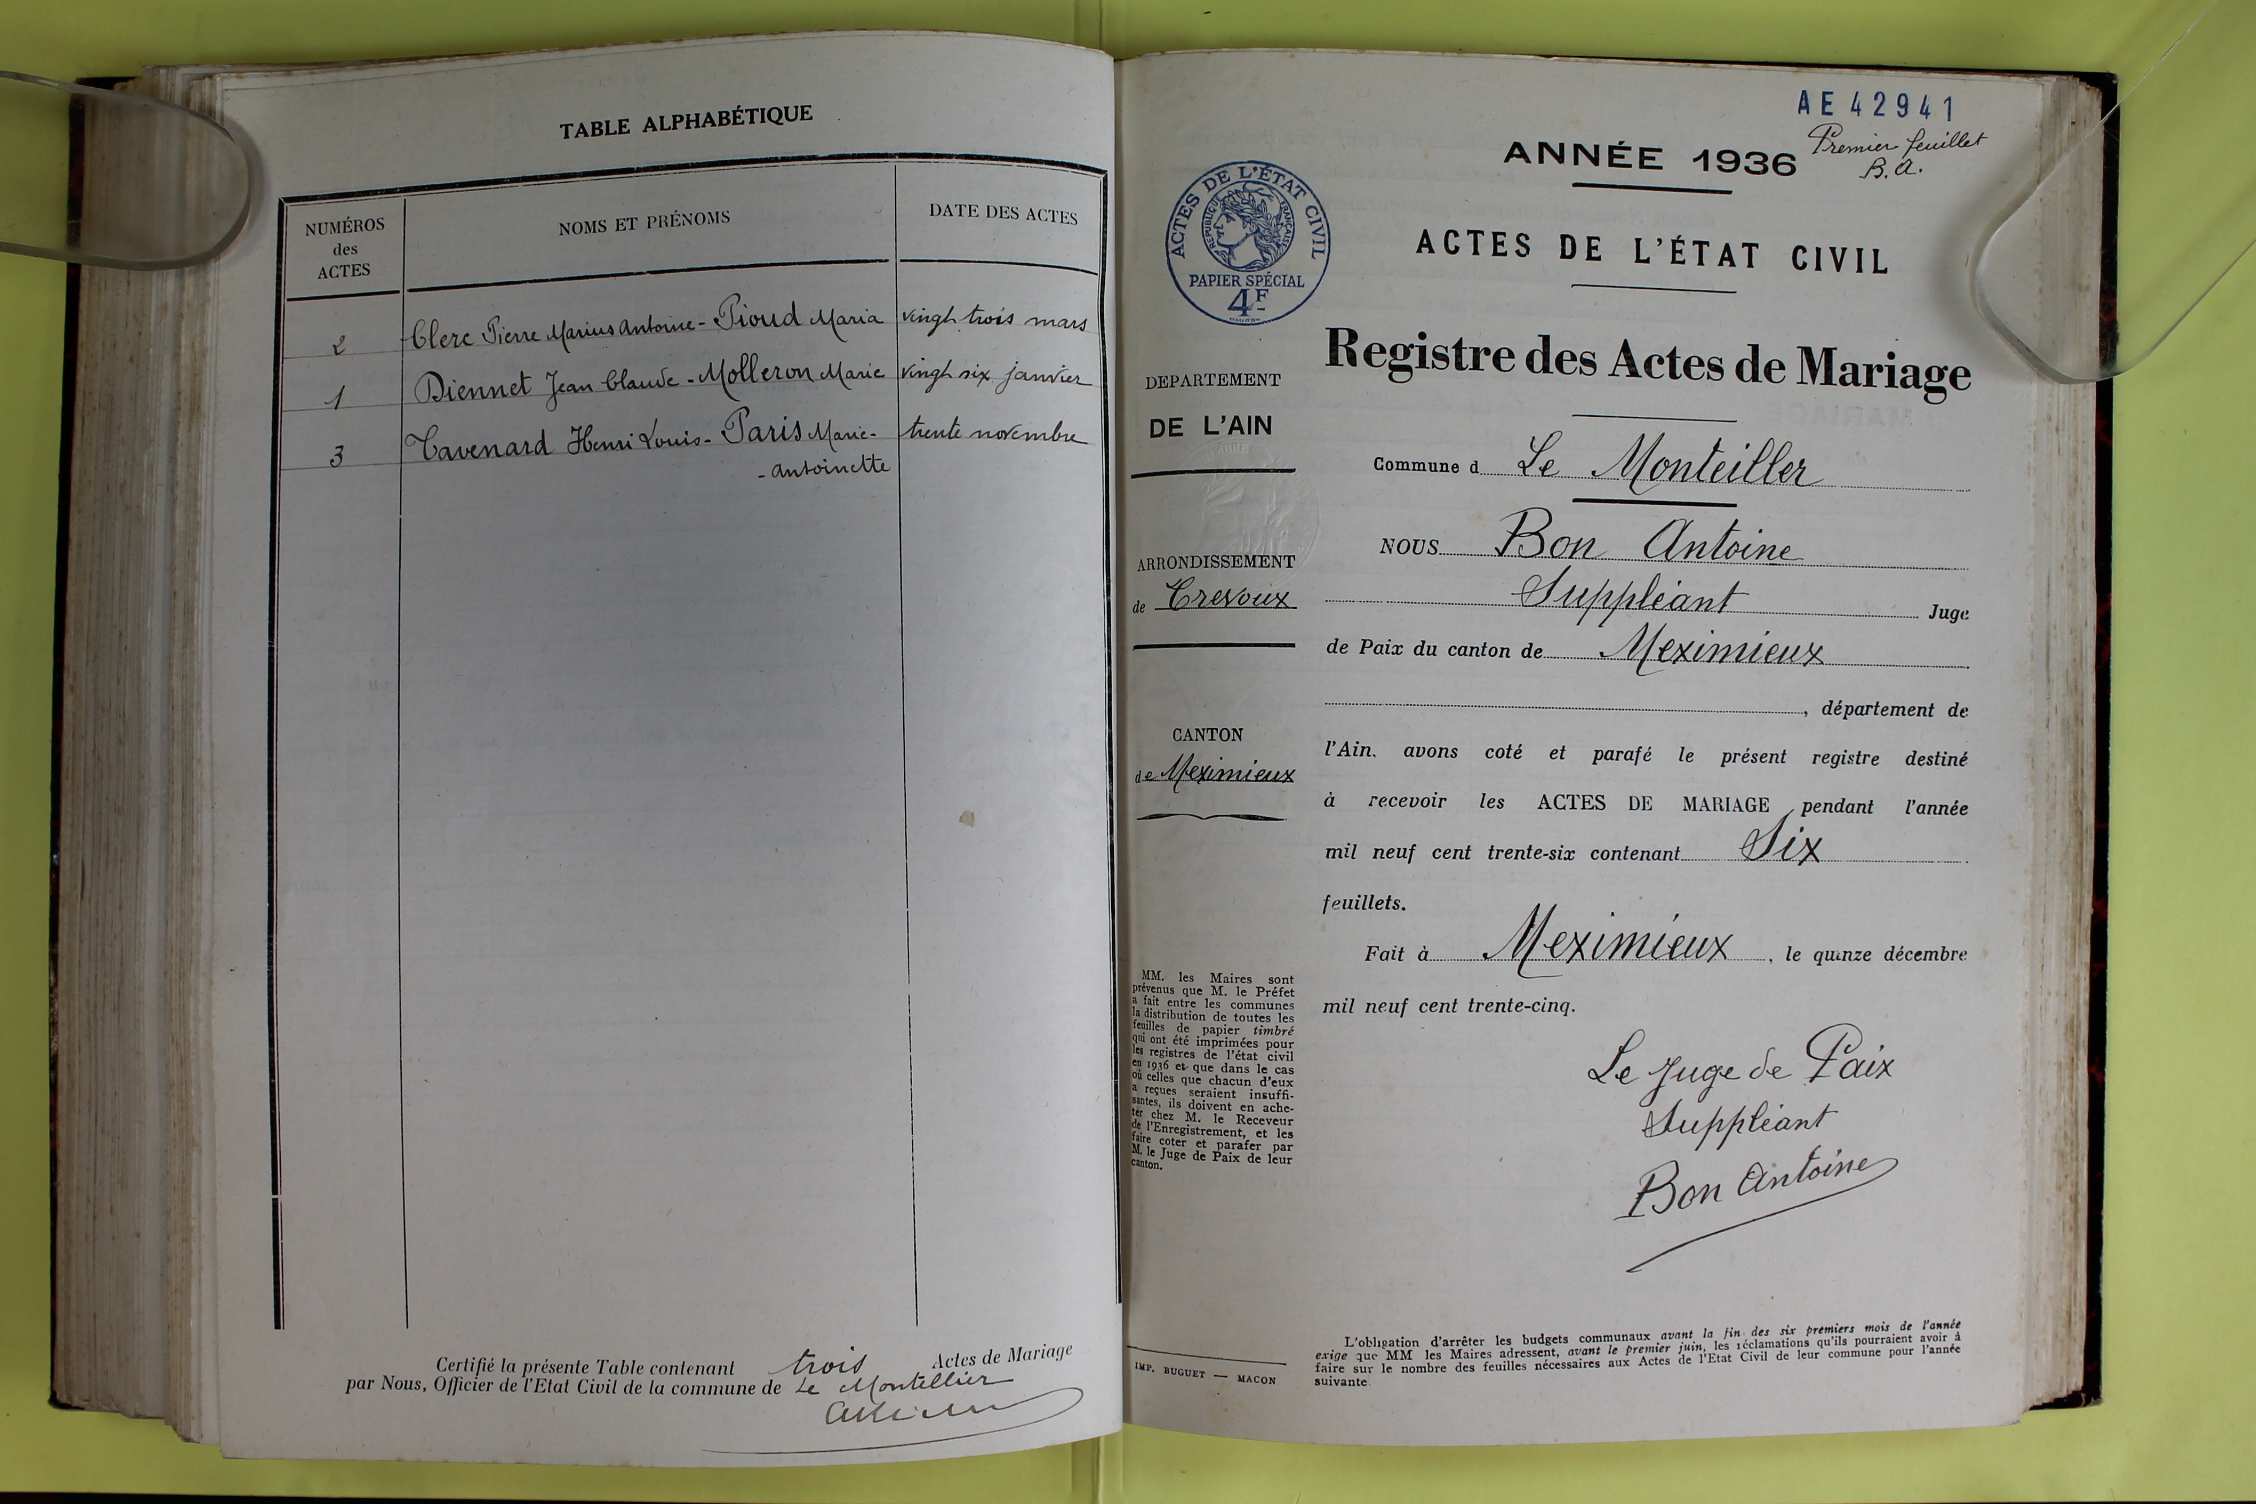 TABLE ALPHABÉTIQUE
NUMÉROS
des
ACTES
NOMS ET PRÉNOMS
DATE DES ACTES
2 Clerc Pierre Marius Antoine - Pioud Maria vingt trois mars
1 Diennet Jean Claude - Molleron Marie vingt six janvier
3 Tavenard Henri Louis - Paris Marie- trente novembre
- Antoinette
Certifié la présente Table contenant trois Actes de Mariage
par Nous, Officier de l'Etat Civil de la commune de Le Montellier
AE 42941
Premier feuillet
B.A.
ANNÉE 1936
ACTES DE L'ÉTAT CIVIL
RÉPUBLIQUE FRANÇAISE
PAPIER SPÉCIAL
4F
ACTES DE L'ÉTAT CIVIL
Registre des Actes de Mariage
DEPARTEMENT
DE L'AIN
ARRONDISSEMENT
de Trevoux
CANTON
de Meximieux
MM. les Maires sont
prévenus que M. le Préfet
a fait entre les communes
la distribution de toutes les
feuilles de papier timbré
qui ont été imprimées pour
les registres de l'état civil
en 1936 et que dans le cas
où celles que chacun d'eux
a reçues seraient insuffi-
santes, ils doivent en ache-
ter chez M. le Receveur
de l'Enregistrement, et les
faire coter et parafer par
M. le Juge de Paix de leur
canton.
IMP. BUGUET — MACON
Commune d Le Monteiller
NOUS Bon Antoine
Suppléant Juge
de Paix du canton de Meximieux
, département de
l'Ain. avons coté et parafé le présent registre destiné
à recevoir les ACTES DE MARIAGE pendant l'année
mil neuf cent trente-six contenant Six
feuillets.
Fait à Meximieux, le quinze décembre
mil neuf cent trente-cinq.
Le Juge de Paix
Suppléant
Bon Antoine
L'obligation d'arrêter les budgets communaux avant la fin des six premiers mois de l'année
exige que MM les Maires adressent, avant le premier juin, les réclamations qu'ils pourraient avoir à
faire sur le nombre des feuilles nécessaires aux Actes de l'Etat Civil de leur commune pour l'année
suivante.